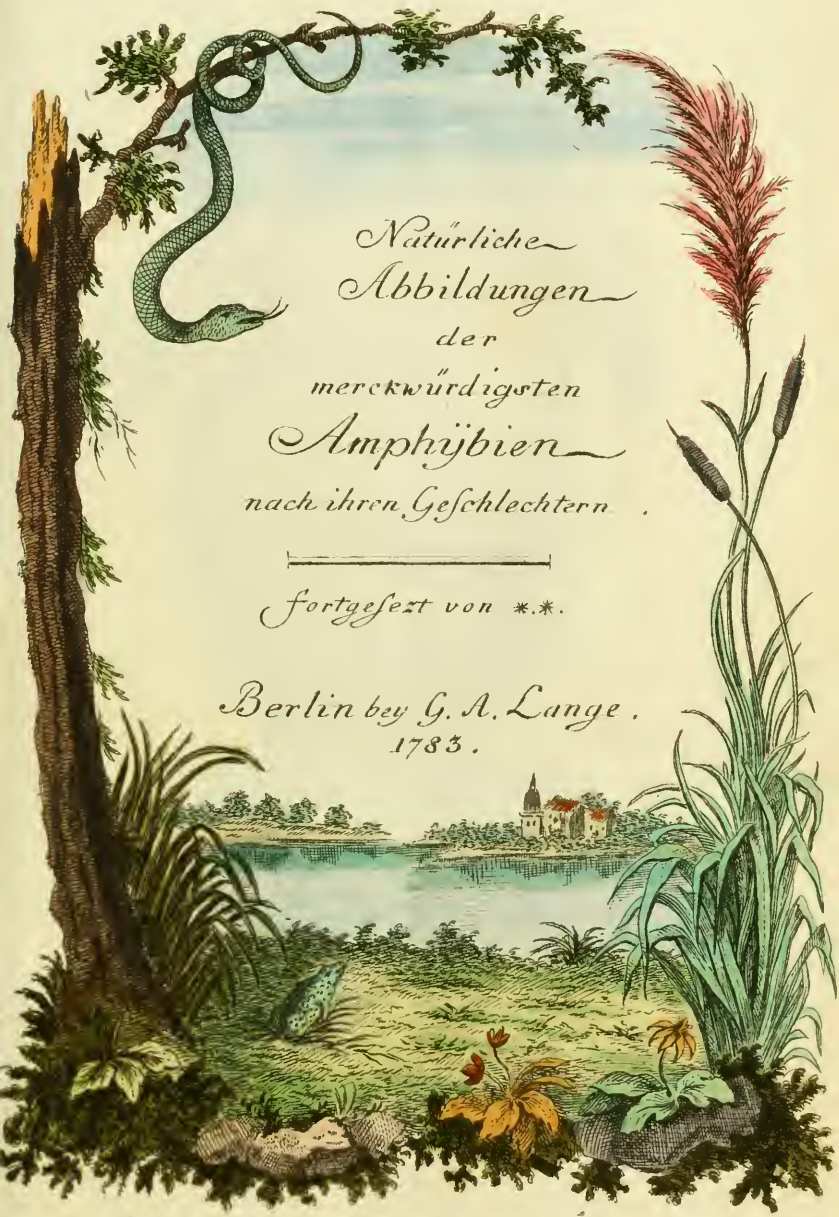 Natürliche
Abbildungen
der
merckwürdigsten
Amphÿbien
nach ihren Geſchlechtern.
fortgeſezt von *.*.
Berlin bey G. A. Lange.
1783.